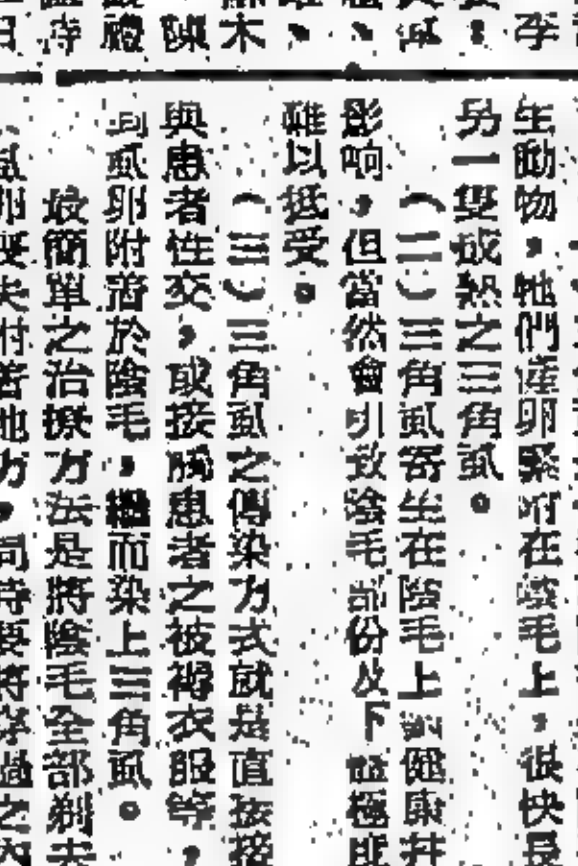 李
木
陳
禮
寺
日
生動物，牠們產卵緊附在陰毛上，很快長
另一隻成熟之三角虱。
（二）三角虱寄生在陰毛上對健康并
影响，但當然會引致陰毛部份及下體極
難以抵受。
（三）三角虱之傳染方式就是直接接
與患者性交，或接觸患者之被褥衣服等，
虱卵附着於陰毛，繼而染上三角虱。
最簡單之治療方法是將陰毛全部剃去
虱卵要失附着地方，同時要將穿過之內